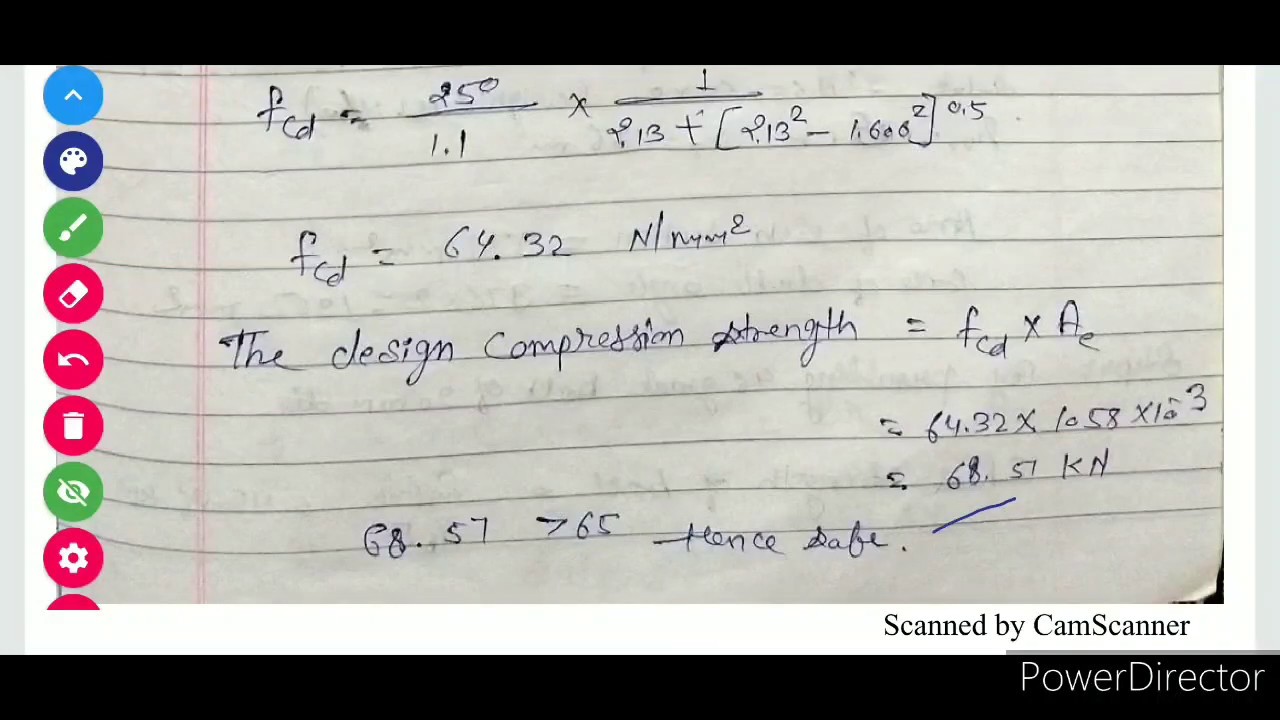 fcd = 250 / 1.1 × 1 / 2.13 + [2.13² - 1.606²]^0.5
fcd = 64.32 N/mm²
The design compression strength = fcd × Ae
= 64.32 × 1058 × 10^-3
= 68.51 KN
68.57 > 65 Hence safe.
Scanned by CamScanner
PowerDirector